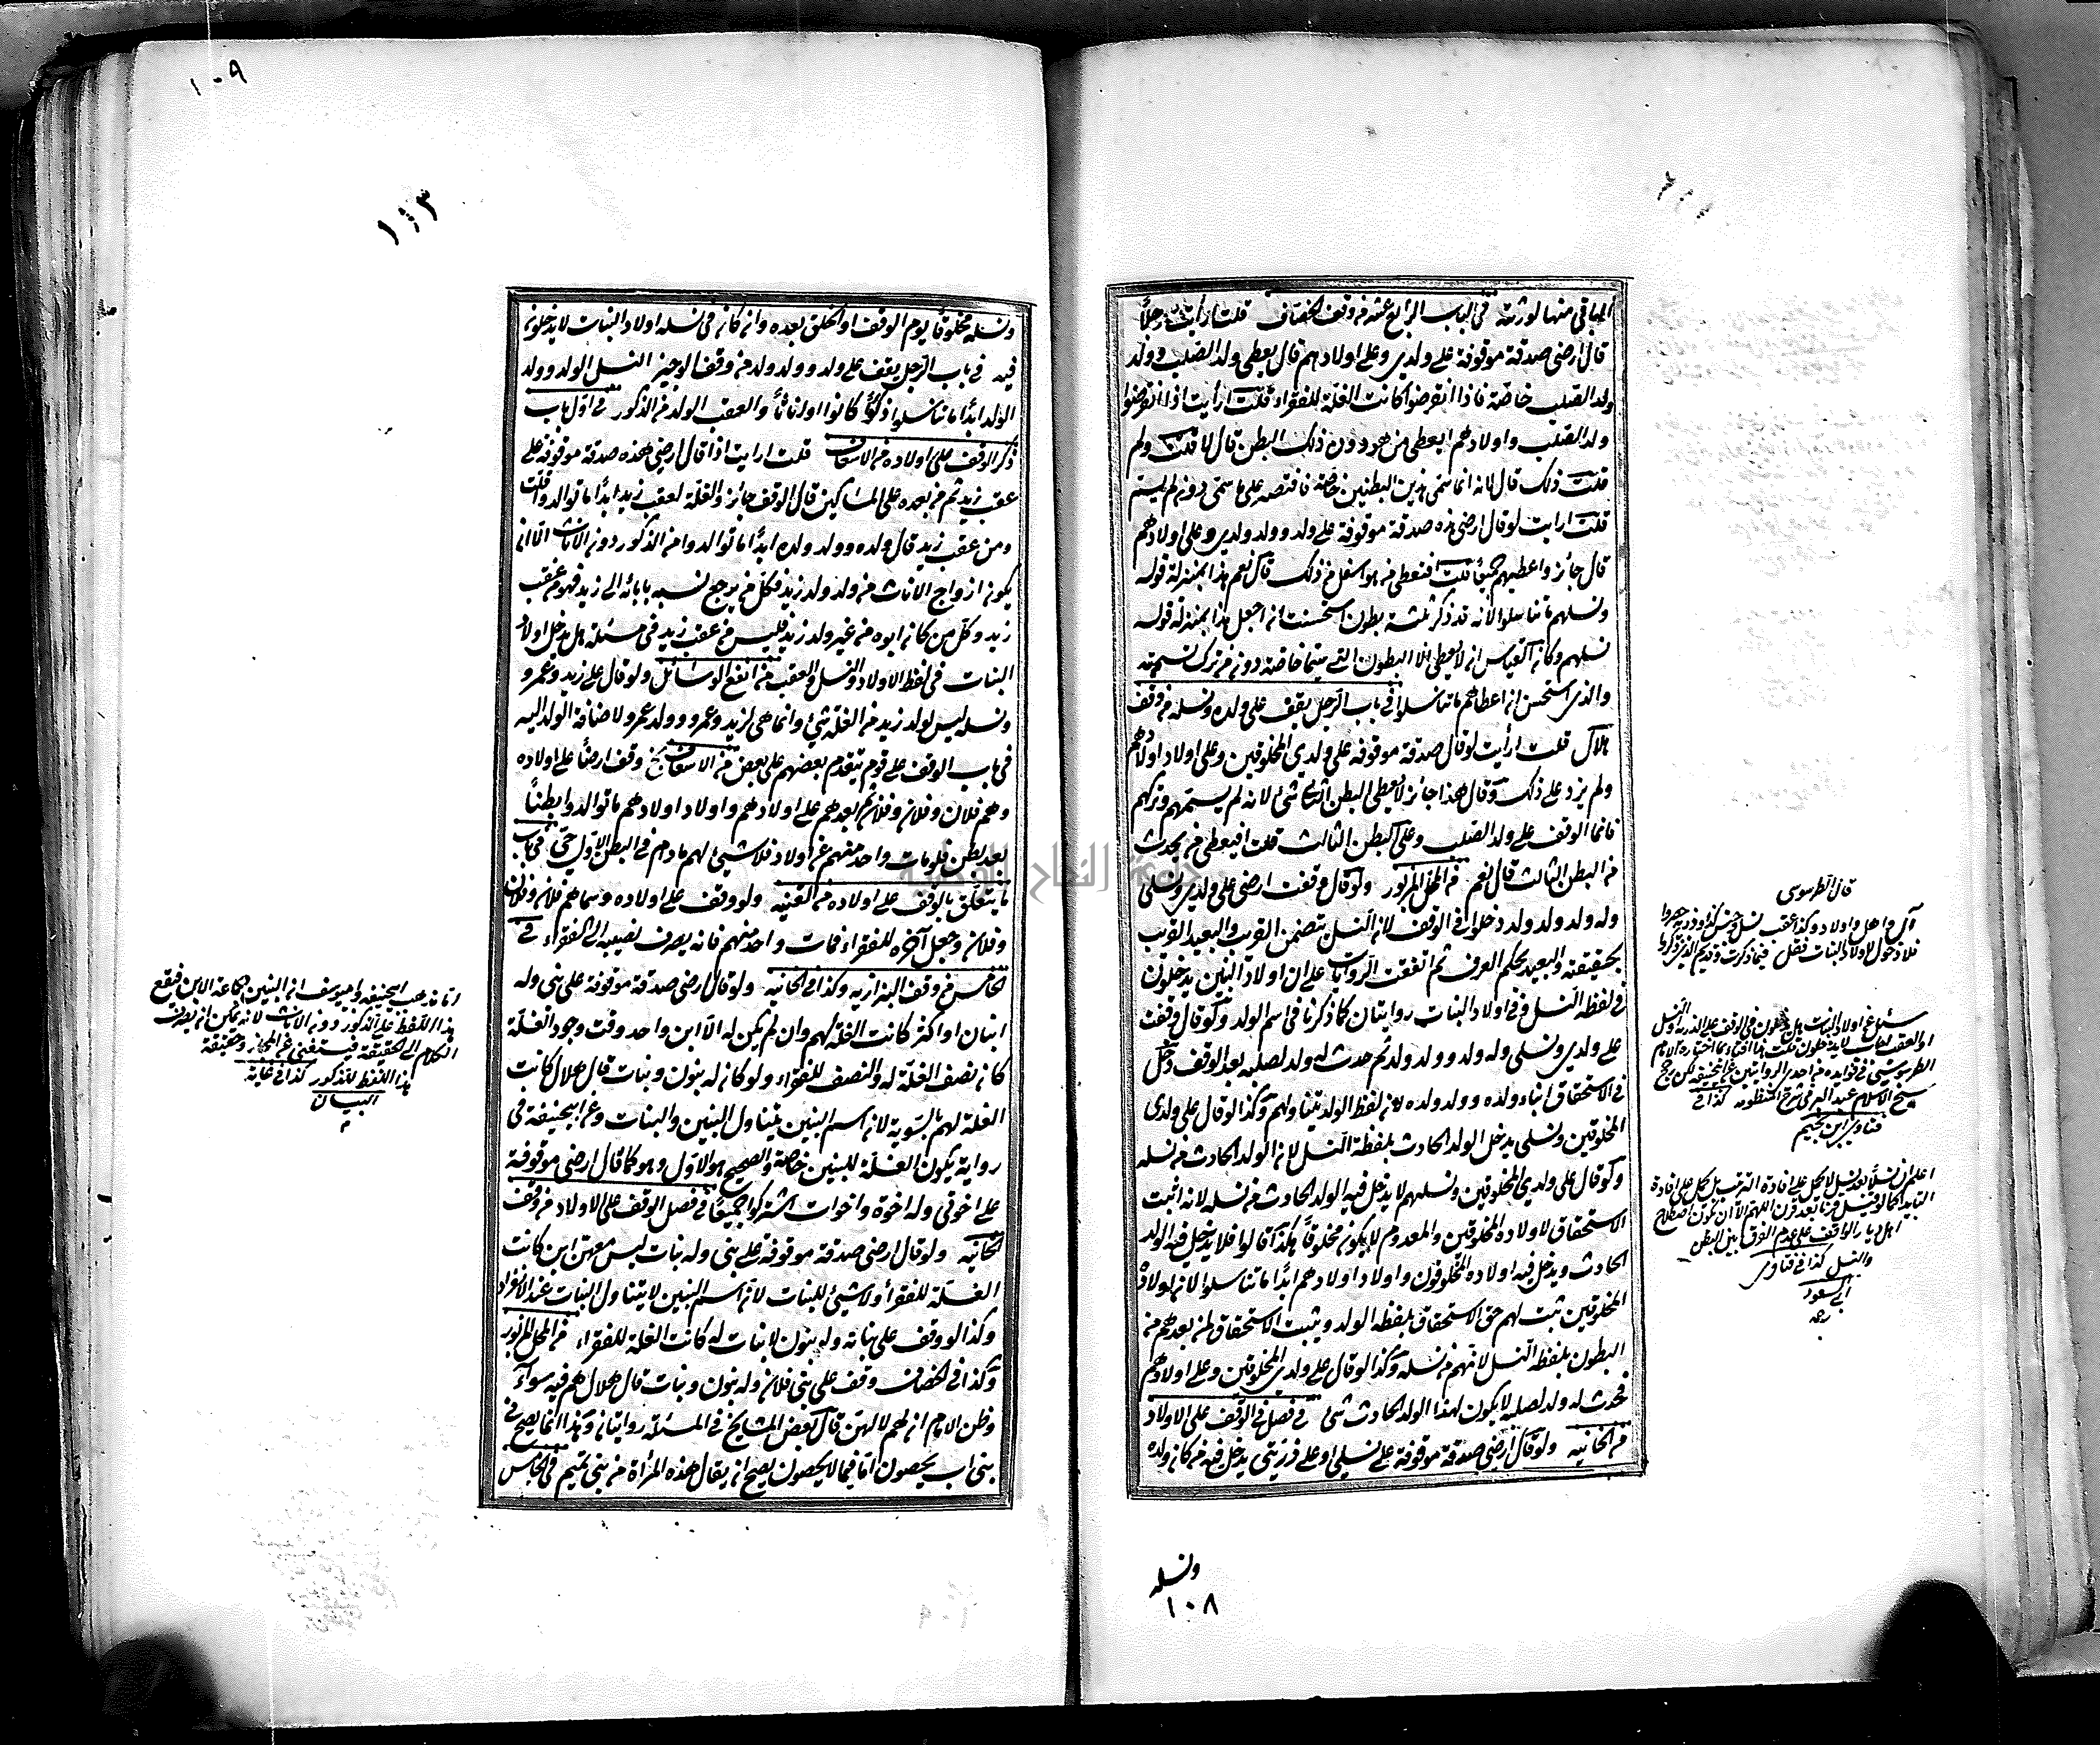 الباقي منها لورثته في الباب الرابع عشر من وقف الخصاف قلت ارايت رجلاً
قال ارضي صدقة موقوفة على ولدي وعلى اولادهم قال يعطى ولد الصلب وولد
ولد الصلب خاصّة فاذا انقرضوا كانت الغلّة للفقراء قلت ارايت اذا انقرضوا
ولد الصلب واولادهم ايعطى من هو دون ذلك البطن قال لا قلت ولم
قلت ذلك قال لانه انما سمّى هذين البطنين خاصّة فاقتصر على ما سمّى دون لم يسمّ
قلت ارايت لو قال ارضي هذه صدقة موقوفة على ولد وولد ولدي وعلى اولادهم
قال جائز واعطيهم جميعاً قلت فتعطي من هو اسفل من ذلك قال نعم هذا بمنزلة قوله
ونسلهم ما تناسلوا لانه قد ذكر ثلثة بطون استحسنت ان اجعل هذا بمنزلة قوله
نسلهم وكان القياس ان لا يعطى الا البطون التي سمّى خاصة دون من ترك تسميته
والذي استحسن ان اعطاهم ما تناسلوا في باب الرّجل يقف على ولده ونسله من وقف
هلال قلت ارأيت لو قال صدقة موقوفة على ولدي المخلوقين وعلى اولاد اولادهم
ولم يزد على ذلك وقال هذا جائز لا يعطى البطن الثاني شئ لانه لم يسمّهم وتركهم
فانما الوقف على ولد الصلب وعلى البطن الثالث قلت افيعطى من يحدث
من البطن الثالث قال نعم من المحل المزبور ولو قال وقفت ارضي على ولدي ونسلي
وله ولد وولد ولد دخلوا في الوقف لان النسل تضمن القريب والبعيد القريب
بحقيقته والبعيد بحكم العرف ثم اتفقت الروايات على ان اولاد البنين يدخلون
في لفظ النسل وفي اولاد البنات روايتان كما ذكرنا في اسم الولد ولو قال وقفت
على ولدي ونسلي وله ولد وولد ولد ثم حدث له ولد لصلبه بعد الوقف دخل
في الاستحقاق ابناء ولده وولد ولده لان لفظ الولد يتناولهم وكذا لو قال على ولدي
المخلوقين ونسلي يدخل الولد الحادث بلفظة النسل لان الولد الحادث من نسله
ولو قال على ولدي المخلوقين ونسلهم لا يدخل فيه الولد الحادث من نسله لانه اثبت
الاستحقاق لاولاده المخلوقين والمعدوم لا يكون مخلوقاً هكذا قالوا فلا يدخل فيه الولد
الحادث ويدخل فيه اولاده المخلوقون واولاد اولادهم ابداً ما تناسلوا لان لولاده
المخلوقين ثبت لهم حق الاستحقاق بلفظة الولد ويثبت الاستحقاق لمن بعدهم من
البطون بلفظة النسل لانهم من نسله وكذا لو قال على ولدي المخلوقين وعلى اولادهم
فحدث له ولد لصلبه لا يكون لهذا الولد الحادث شئ في فصل في الوقف على الاولاد
من الخانيه ولو قال ارضي صدقة موقوفة على نسلي او على ذريتي يدخل فيه من كان ولده
ونسله
١٠٨
قال الطرسوسي
آل واهل واولاد وكذا عقب نسل وجنس كذا وذرية حصروا
فلا دخول لاولاد البنات فقل فيما ذكرت
سئل عن اولاد البنات هل يدخلون في الوقف على الذرية والنسل
الطرسوسي في فوايده من احد الروايتين عن ابي حنيفة لكن رجح
شيخ الاسلام عبد البر في شرح المنظومه كذا في
فتاوى ابن نجيم
اهل ديار الواقف على عدم الفرق بين البطن
والنسل كذا في فتاوى
ابي السعود
رحمه
١٠٩
١١٣
ونسله مخلوقاً يوم الوقف او الخلق بعده وان كان في نسله اولاد البنات لا يدخلون
فيه في باب الرّجل يقف على ولد وولد ولد من وقف الوجيز النسل الولد وولد
الولد ابداً ما تناسلوا ذكوراً كانوا او اناثاً والعقب الولد من الذكور في اول باب
ذكر الوقف على اولاده من الاسعاف قلت ارايت اذا قال ارضي هذه صدقة موقوفة على
عقب زيد ثم من بعده على المساكين قال الوقف جائز والغلّة لعقب زيد ابداً ما توالدوا قلت
ومن عقب زيد قال ولده وولد ولده ابداً ما توالدوا من الذكور دون الاناث الّا ان
يكون ازواج الاناث من ولد ولد زيد فكل من يرجع نسبه بابائه الى زيد فهو من عقب
زيد وكل من كان ابوه من غير ولد زيد فليس من عقب زيد في مسئلة هل يدخل اولاد
البنات في لفظ الاولاد والنسل والعقب من انفع الوسائل ولو قال على زيد وعمرو
ونسله ليس لولد زيد من الغلّة شئ وانما هي لزيد وعمرو وولد عمرو لاضافة الولد اليه
في باب الوقف على قوم يتقدم بعضهم على بعض من الاسعاف وقف ارضاً على اولاده
وهم فلان وفلان وفلان ثم بعدهم على اولادهم واولاد اولادهم ما توالدوا بطناً
بعد بطن فلو مات واحد منهم عن اولاد فلا شئ لهم ما دام في البطن الاول حيّ في باب
ما يتعلق بالوقف على اولاده من القنية ولو وقف على اولاده وسماهم فلان وفلان
وفلان وجعل آخره للفقراء فمات واحد منهم فانه يصرف نصيبه الى الفقراء في
الخامس من وقف البزازية وكذا في الخانيه ولو قال ارضي صدقة موقوفة على بني وله
ابنان او اكثر كانت الغلة لهم وان لم يكن له الّا ابن واحد وقت وجود الغلّة
كان نصف الغلّة له والنصف للفقراء ولو كان له بنون وبنات قال هلال كانت
الغلة لهم بالسّوية لان اسم البنين يتناول البنين والبنات وعن ابي حنيفة في
رواية يكون الغلّة للبنين خاصّة والصحيح هو الاول وهو كما قال ارضي موقوفة
على اخوتي وله اخوة واخوات اشتركوا جميعاً في فصل الوقف على الاولاد من وقف
الخانيه ولو قال ارضي صدقة موقوفة على بني وله بنات ليس معهن ابن كانت
الغلّة للفقرأ ولا شئ للبنات لان اسم البنين لا يتناول البنات عند الانفراد
وكذا لو وقف على بناته وله بنون لا بنات له كانت الغلة للفقراء من المحل المزبور
وكذا في الخصاف وقف على بني فلان وله بنون وبنات قال هلال هم فيه سواء
وظن الامام انه لهم لا لهن قال بعض المشايخ في المسئلة روايتان وهذا انما يصح في
بني اب يحصون اما فيما لا يحصون يصح ان يقال هذه المرأة من بني تميم في الخامس
اما مذهب ابي حنيفه وابي يوسف ان البنين جماعة الابن فيقع
هذا اللفظ على الذكور دون الاناث لانه يمكن ان يصرف
الكلام الى الحقيقة فيستغنى عن المجاز وحقيقة
هذا اللفظ للذكور كذا في غاية
البيان